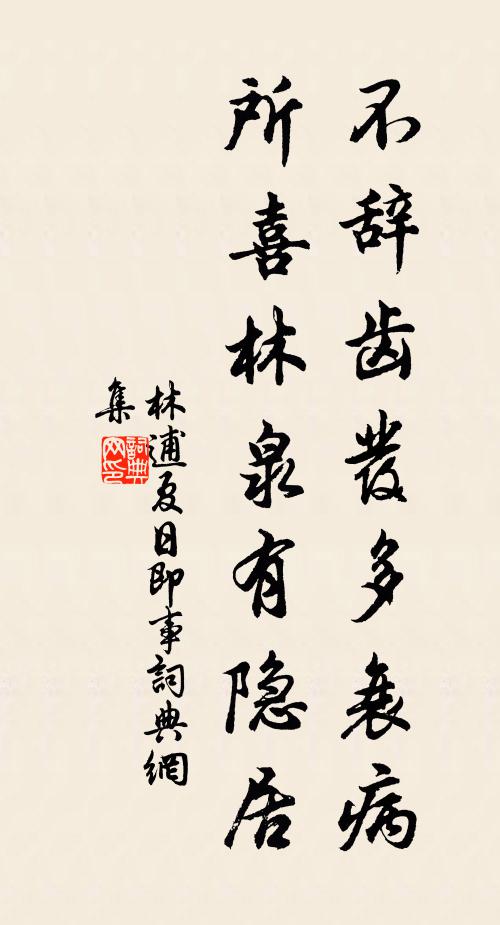 不辞齿发多衰病
所喜林泉有隐居
林逋夏日即事詞典網
集
詞典网印